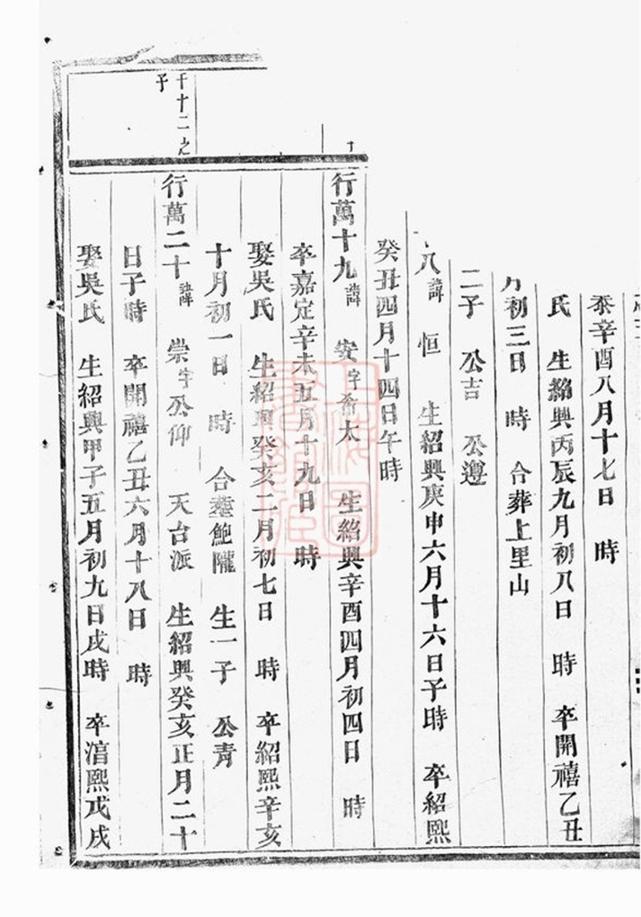 泰辛酉八月十七日　時
氏　生紹興丙辰九月初八日　時　卒開禧乙丑
月初三日　時　合葬上里山
二子　公吉　公遵
八諱　恒　生紹興庚申六月十六日子時　卒紹熙
癸丑四月十四日午時
行萬十九諱　安字希太　生紹興辛酉四月初四日　時
卒嘉定辛未五月十九日　時
娶吳氏　生紹興癸亥二月初七日　時　卒紹熙辛亥
十月初一日　時　合塟鮑隴　生一子　公青
千十二之
予
行萬二十諱　崇字公仰　天台派　生紹興癸亥正月二十
日子時　卒開禧乙丑六月十八日　時
娶吳氏　生紹興甲子五月初九日戌時　卒淳熙戊戌